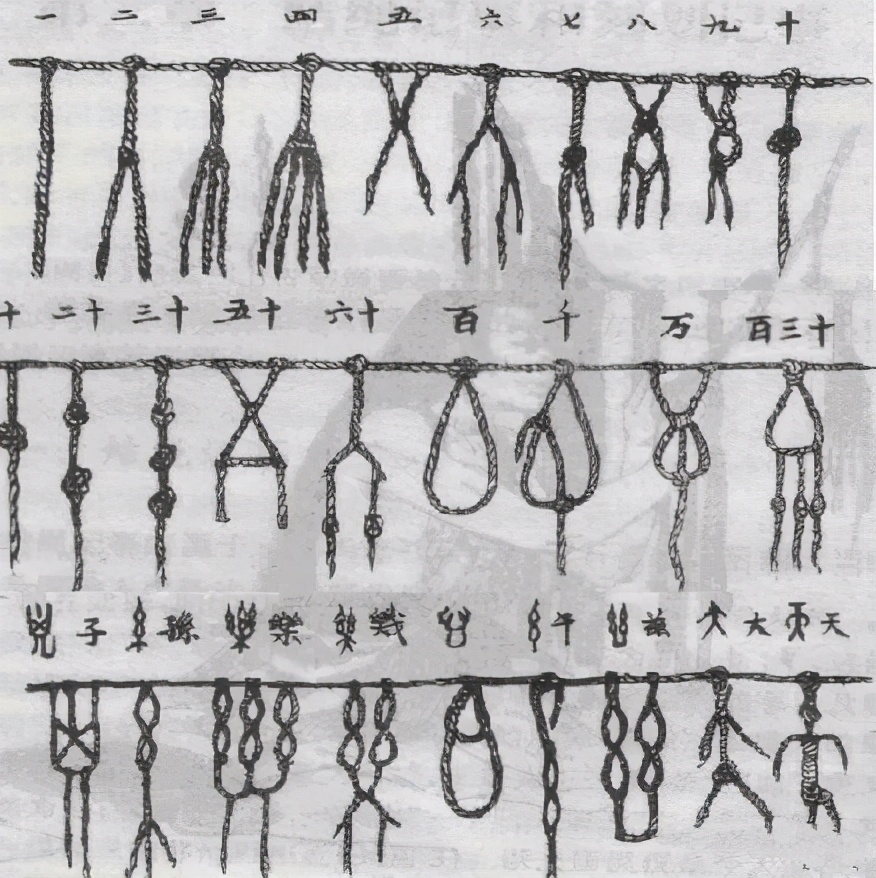 一 二 三 四 五 六 七 八 九 十
十 二十 三十 五十 六十 百 千 万 百三十
子 孫 樂 幾 午 大 天